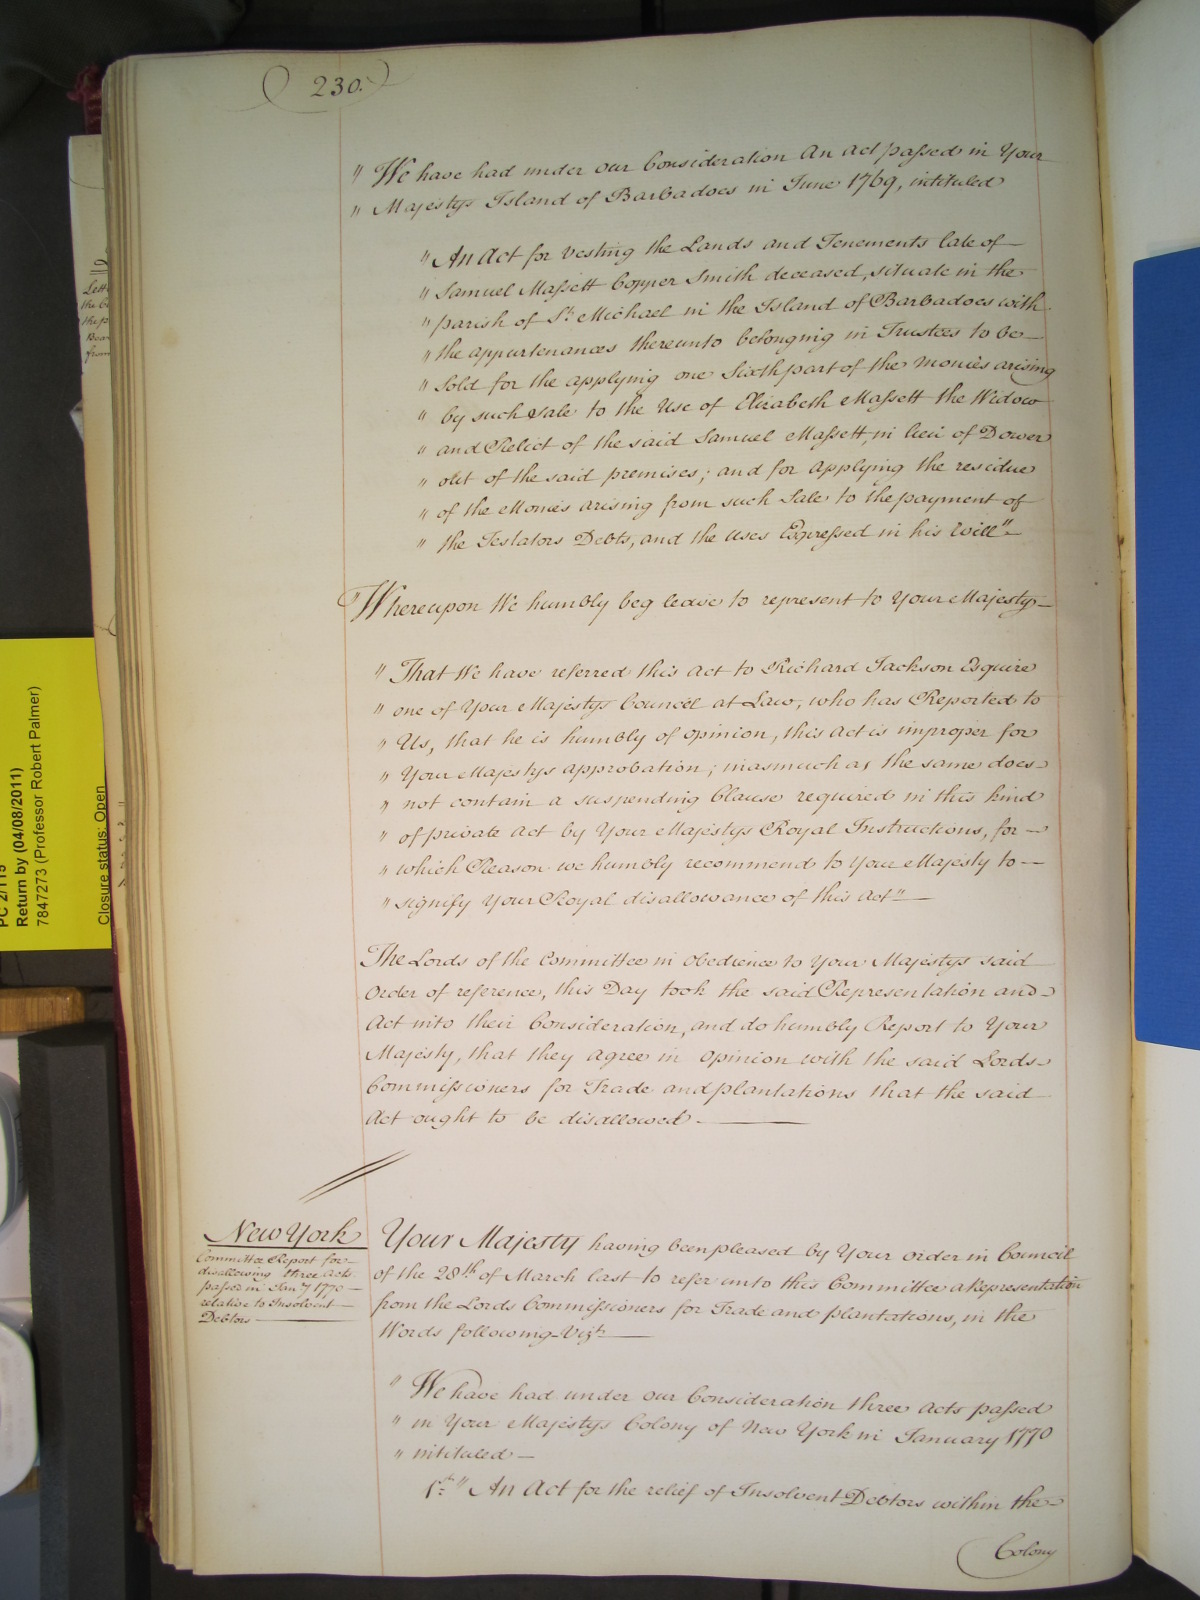 230.
" We have had under our Consideration An Act passed in Your
" Majestys Island of Barbadoes in June 1769, intituled
" An Act for vesting the Lands and Tenements late of
" Samuel Massett Copper Smith deceased, situate in the
" parish of St. Michael in the Island of Barbadoes with
" the appurtenances thereunto belonging in Trustees to be
" Sold for the applying one Sixth part of the monies arising
" by such Sale to the Use of Elizabeth Massett the Widow
" and Relict of the said Samuel Massett, in lieu of Dower
" out of the said premises; and for applying the residue
" of the Monies arising from such Sale to the payment of
" the Testators Debts, and the uses Expressed in his Will"
"Whereupon We humbly beg leave to represent to Your Majesty
" That We have referred this Act to Richard Jackson Esquire
" one of Your Majestys Council at Law, who has Reported to
" Us, that he is humbly of opinion, this Act is improper for
" Your Majestys approbation; inasmuch as the same does
" not contain a suspending Clause required in this kind
" of private Act by Your Majestys Royal Instructions, for
" which Reason we humbly recommend to Your Majesty to
" signify Your Royal disallowance of this Act"
The Lords of the Committee in obedience to Your Majestys said
Order of reference, this Day took the said Representation and
Act into their Consideration, and do humbly Report to Your
Majesty, that they agree in Opinion with the said Lords
Commissioners for Trade and plantations that the said
Act ought to be disallowed
New York
Committee Report for
disallowing three Acts
passed in Janry 1770
relative to Insolvent
Debtors
Your Majesty having been pleased by Your order in Council
of the 28th of March last to refer unto this Committee a Representation
from the Lords Commissioners for Trade and plantations, in the
Words following Vizt.
" We have had under our Consideration three Acts passed
" in Your Majestys Colony of New York in January 1770
" intituled
1st. " An Act for the relief of Insolvent Debtors within the
Colony
PC 2/115
Return by (04/08/2011)
7847273 (Professor Robert Palmer)
Closure status: Open